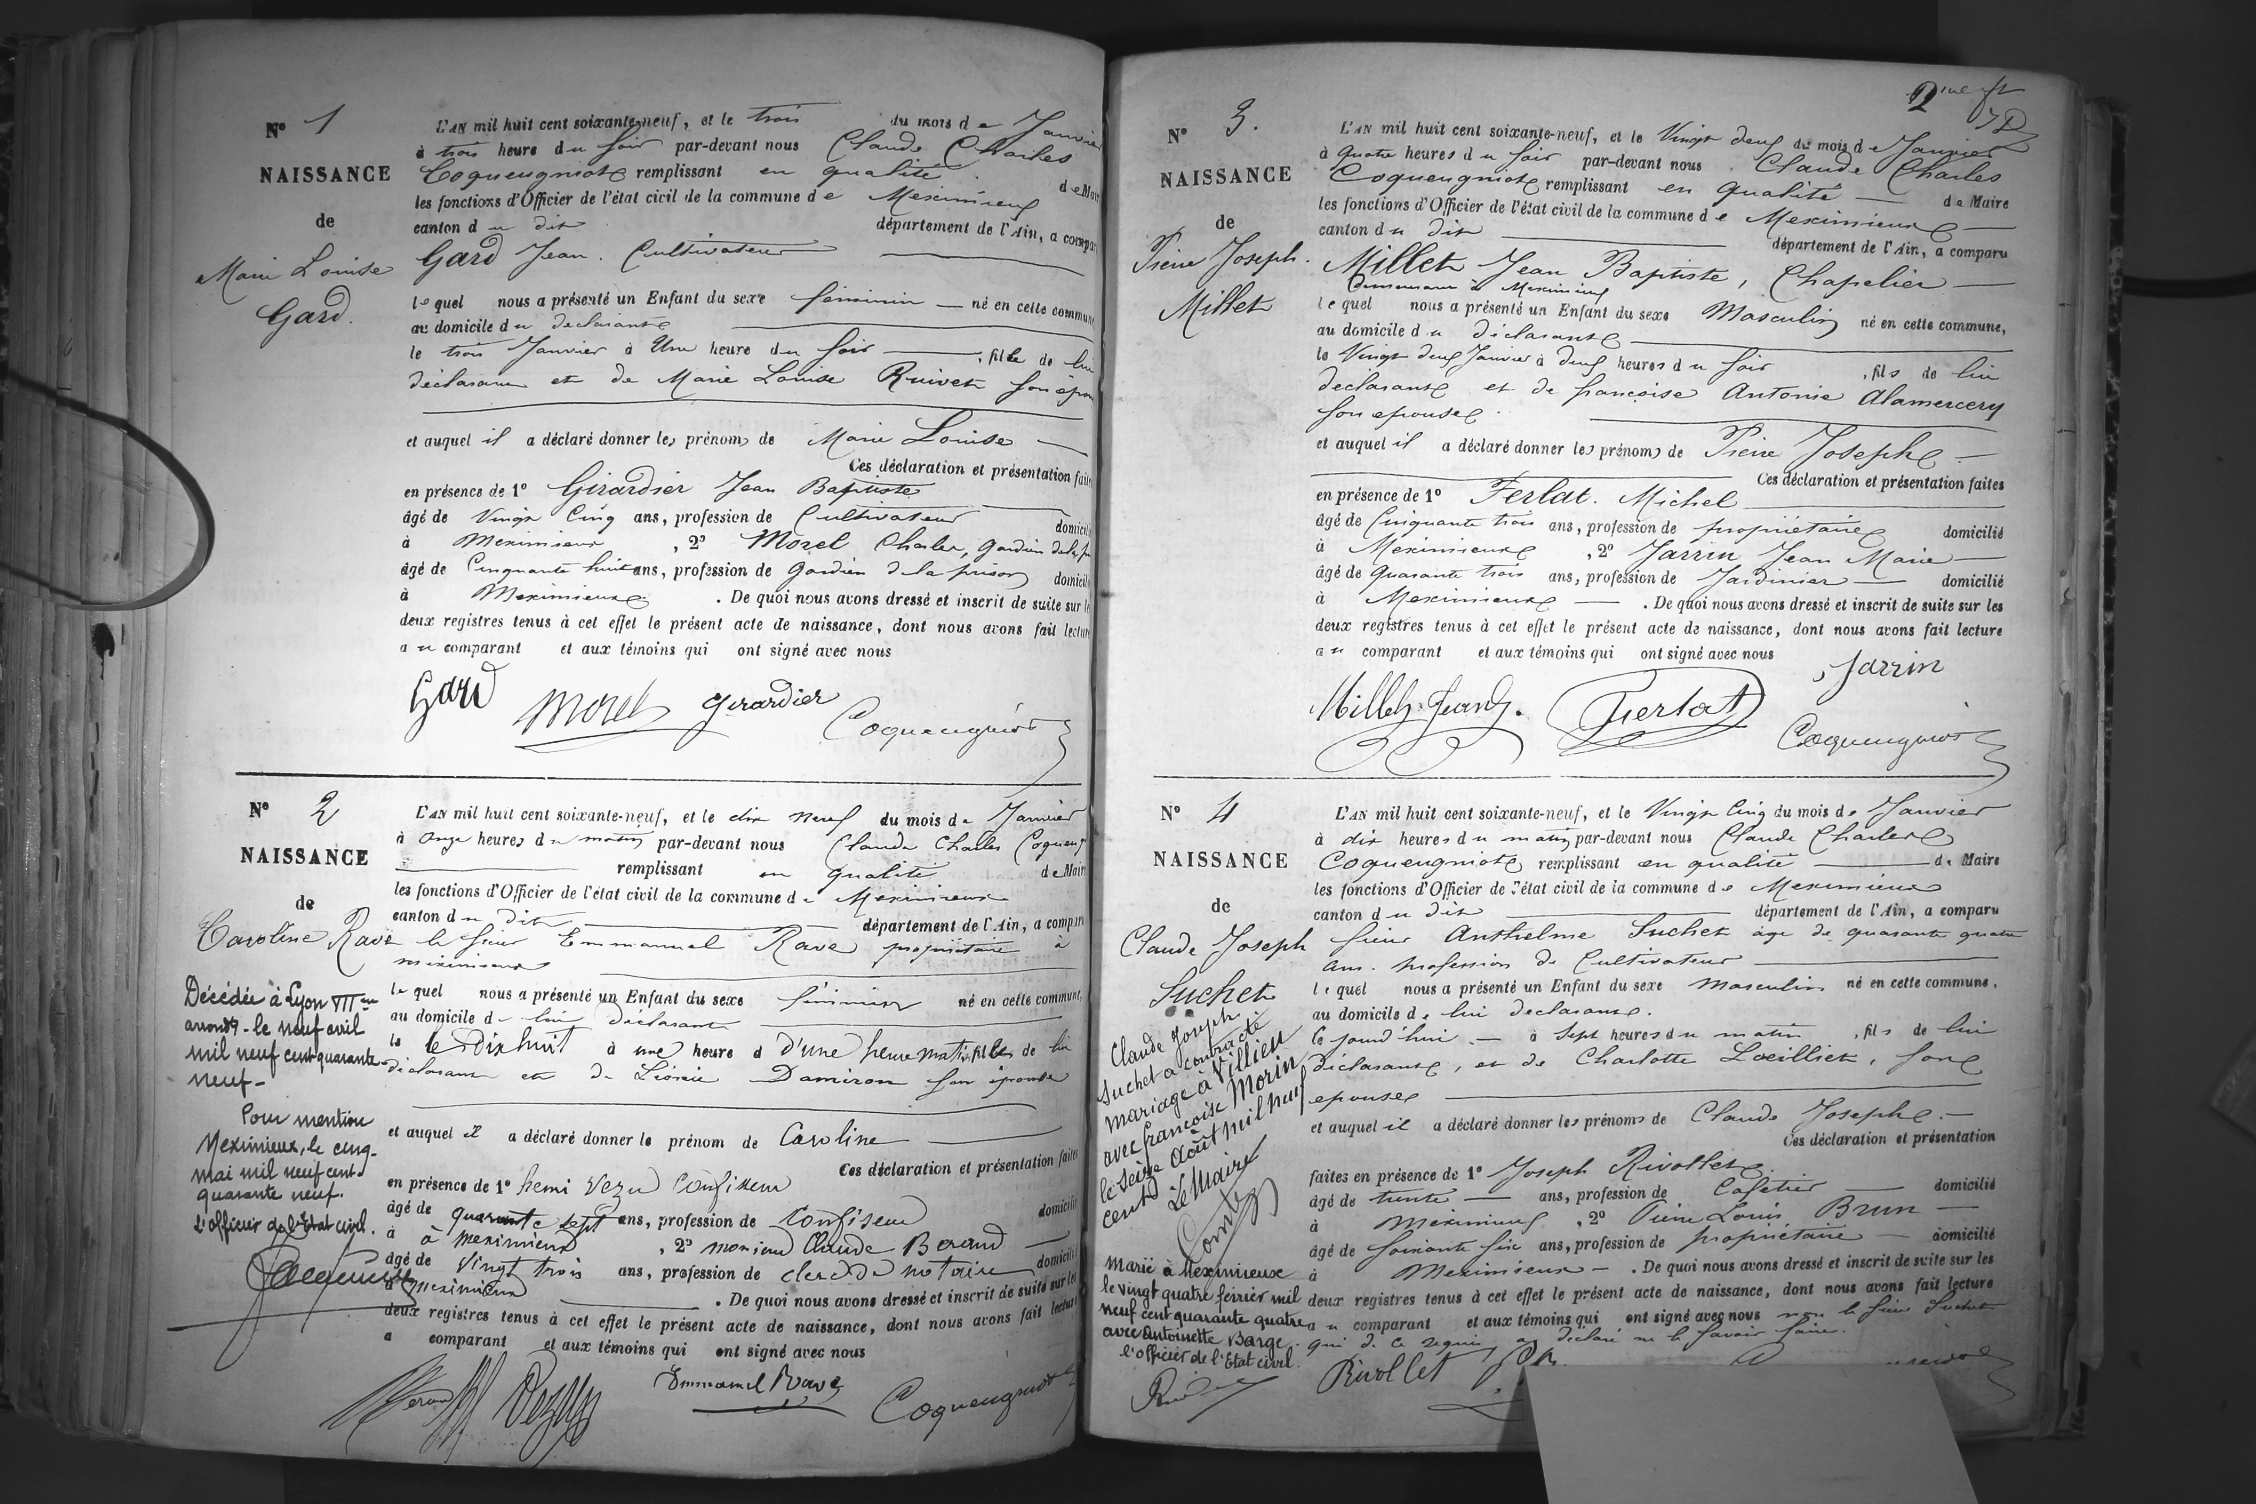 N° 1
NAISSANCE
de
Marie Louise
Gard.
L'AN mil huit cent soixante-neuf, et le trois du mois de Janvier
à trois heure du soir par-devant nous Claude Charles
Coqueugniot remplissant en qualité de Mair
les fonctions d'Officier de l'état civil de la commune de Meximieux
canton du dit département de l'Ain, a compar
Gard Jean. Cultivateur
lequel nous a présenté un Enfant du sexe féminin né en cette commun
au domicile du declarant
le trois Janvier à Une heure du soir, fille de lui
déclarant et de Marie Louise Ruivet son épou
et auquel il a déclaré donner les prénoms de Marie Louise
Ces déclaration et présentation faite
en présence de 1° Girardier Jean Baptiste
âgé de Vingt Cinq ans, profession de Cultivateur domicilié
à Meximieux, 2° Morel Charles, Gardien de la
âgé de Cinquante huit ans, profession de Gardien de la prison domicili
à Meximieux. De quoi nous avons dressé et inscrit de suite sur le
deux registres tenus à cet effet le présent acte de naissance, dont nous avons fait lecture
au comparant et aux témoins qui ont signé avec nous
Gard Morel Girardier Coqueugniot
N° 2
NAISSANCE
de
Caroline Rave
Décédée à Lyon VIIme
arrondt - le neuf avril
mil neuf cent quarante-
neuf -
Pour mention
Meximieux, le cinq
mai mil neuf cent
quarante neuf.
L'officier de l'Etat civil.
L'AN mil huit cent soixante-neuf, et le dix neuf du mois de Janvier
à onze heures du matin par-devant nous Claude Charles Coqueug
remplissant en qualité de Mair
les fonctions d'Officier de l'état civil de la commune de Meximieux
canton du dit département de l'Ain, a comparu
le sieur Emmanuel Rave propriétaire à
meximieux
lequel nous a présenté un Enfant du sexe féminin né en cette commune,
au domicile de lui déclarant
le le Dix huit à une heure d D'une heure matin, fille de lui
déclarant et de Léonie Damiron son épouse
et auquel il a déclaré donner le prénom de Caroline
Ces déclaration et présentation faites
en présence de 1° henri Vezu Confiseur
âgé de quarante sept ans, profession de Confiseur domicilié
à à meximieux, 2° monsieur Claude Beraud
âgé de Vingt trois ans, profession de clerc de notaire domicilié
à meximieux. De quoi nous avons dressé et inscrit de suite sur les
deux registres tenus à cet effet le présent acte de naissance, dont nous avons fait lecture
a comparant et aux témoins qui ont signé avec nous
Beraud Vezu Emmanuel Rave Coqueugniot
2me ft
N° 3.
NAISSANCE
de
Pierre Joseph.
Millet
L'AN mil huit cent soixante-neuf, et le Vingt deux du mois de Janvier
à Quatre heures du soir par-devant nous Claude Charles
Coqueugniot remplissant en qualité de Maire
les fonctions d'Officier de l'état civil de la commune de Meximieux
canton du dit département de l'Ain, a comparu
Millet Jean Baptiste, Chapelier
Demeurant à Meximieux
lequel nous a présenté un Enfant du sexe Masculin né en cette commune,
au domicile du déclarant
le Vingt deux Janvier à deux heures du soir, fils de lui
declarant et de françoise Antonie Alamercery
son epouse
et auquel il a déclaré donner les prénoms de Pierre Joseph
Ces déclaration et présentation faites
en présence de 1° Ferlat. Michel
âgé de Cinquante trois ans, profession de propriétaire domicilié
à Meximieux, 2° Jarrin Jean Marie
âgé de Quarante trois ans, profession de Jardinier domicilié
à Meximieux. De quoi nous avons dressé et inscrit de suite sur les
deux registres tenus à cet effet le présent acte de naissance, dont nous avons fait lecture
au comparant et aux témoins qui ont signé avec nous
Jarrin
Millet Jean Ferlat Coqueugniot
N° 4
NAISSANCE
de
Claude Joseph
Suchet
Claude Joseph
Suchet a contracté
mariage à Villieu
avec françoise Morin
le seize Août mil neuf
cent
Le Maire
Marié à Meximieux
le vingt quatre février mil
neuf cent quarante quatre
avec Antoinette Barge.
l'officier de l'Etat civil.
L'AN mil huit cent soixante-neuf, et le Vingt Cinq du mois de Janvier
à dix heures du matin par-devant nous Claude Charles
Coqueugniot remplissant en qualité de Maire
les fonctions d'Officier de l'état civil de la commune de Meximieux
canton du dit département de l'Ain, a comparu
sieur Anthelme Suchet age de quarante quatre
ans. profession de Cultivateur
lequel nous a présenté un Enfant du sexe masculin né en cette commune,
au domicile de lui declarant.
le jourd'hui à sept heures du matin, fils de lui
déclarant, et de Charlotte Loeilliet, son
epouse
et auquel il a déclaré donner les prénoms de Claude Joseph.
Ces déclaration et présentation
faites en présence de 1° Joseph Rivollet
âgé de trente ans, profession de Cafetier domicilié
à Meximieux, 2° Pierre Louis Brun
âgé de soixante six ans, profession de propriétaire domicilié
à Meximieux. De quoi nous avons dressé et inscrit de suite sur les
deux registres tenus à cet effet le présent acte de naissance, dont nous avons fait lecture
au comparant et aux témoins qui ont signé avec nous non le sieur Suchet
qui de ce requis a déclaré ne le savoir faire.
Rivollet